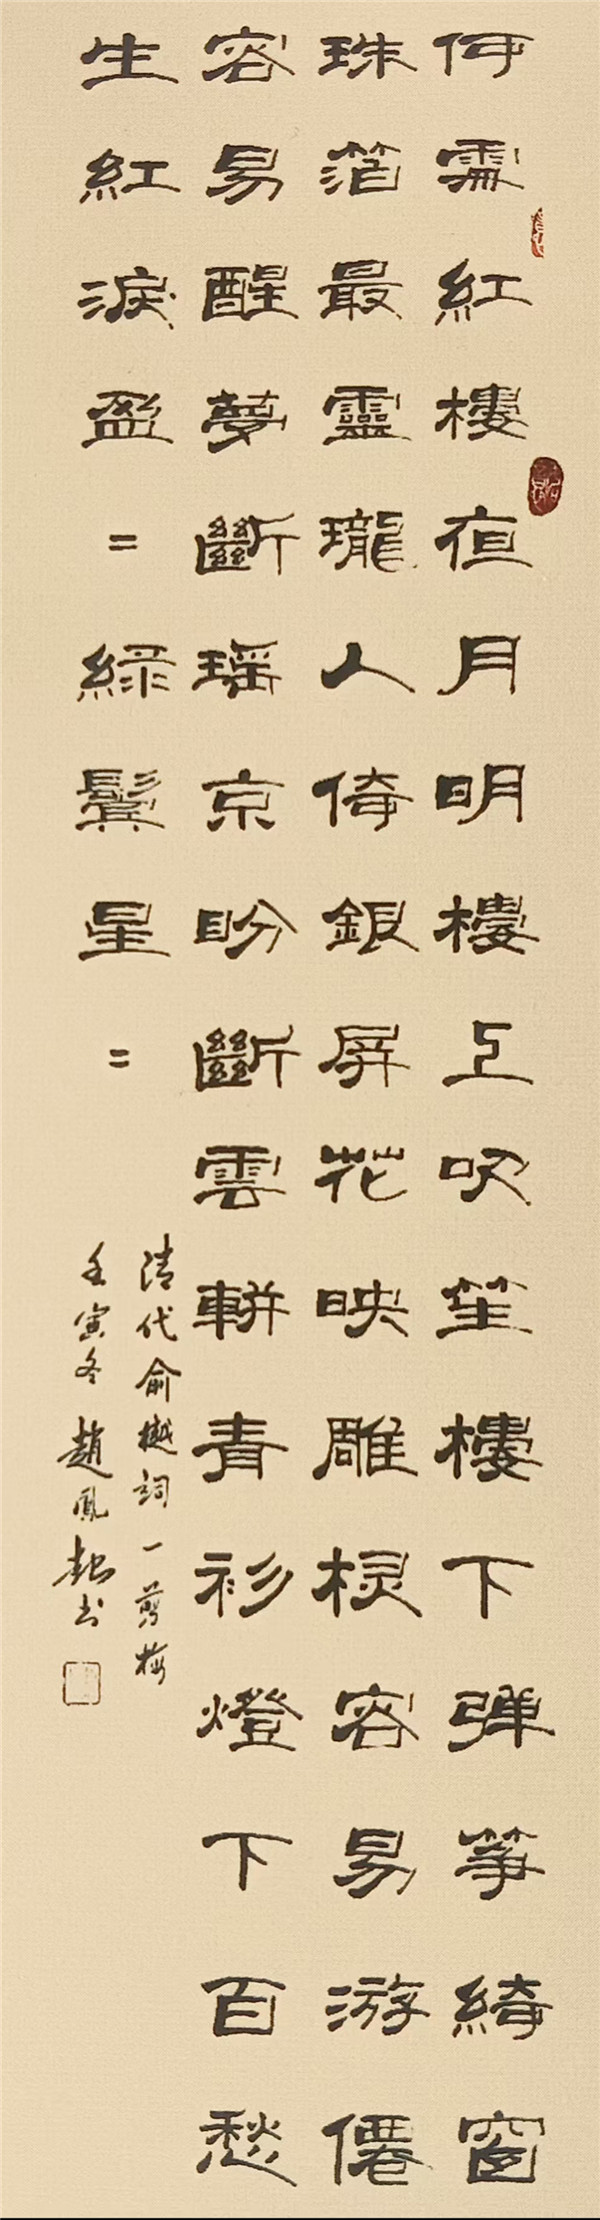 何需紅樓夜月明樓上吹笙樓下弹箏綺窗
珠箔最靈瓏人倚銀屏花映雕棂容易游僊
容易醒夢斷瑶京盼斷雲軿青衫燈下百愁
生紅淚盈=緑鬢星=
清代俞樾詞一剪梅
壬寅冬趙鳳书